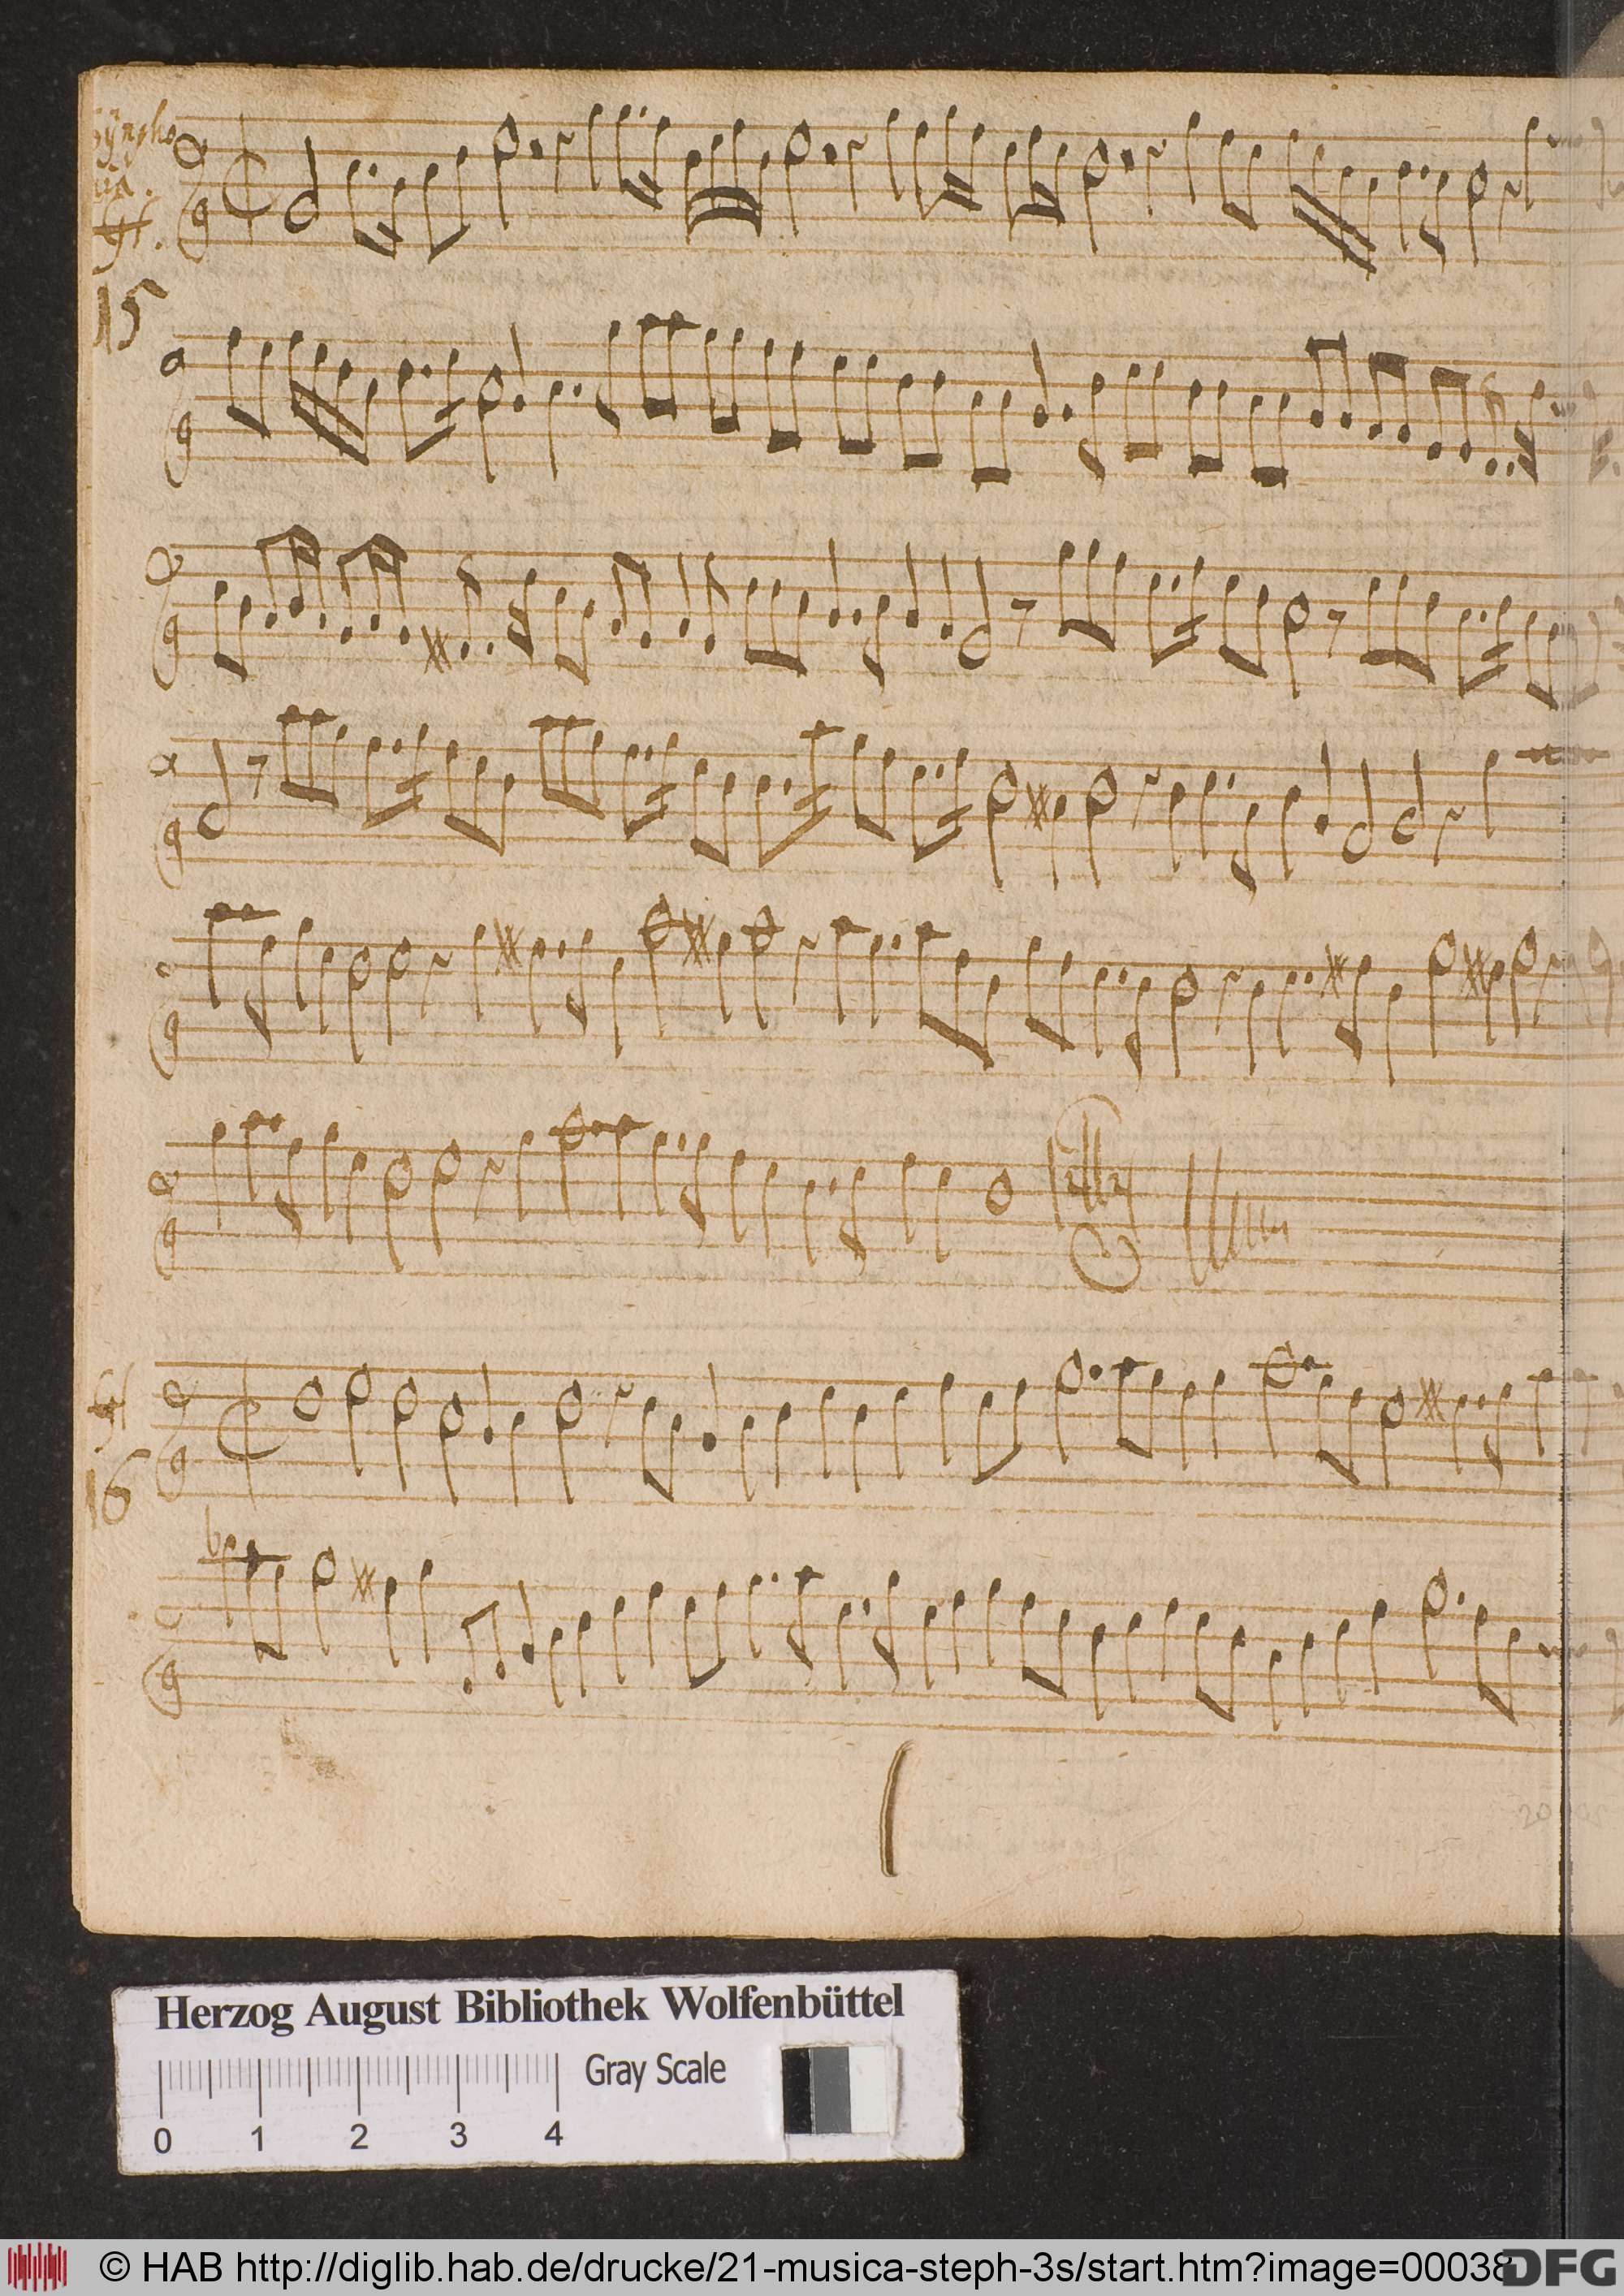 15
16
Herzog August Bibliothek Wolfenbüttel
Gray Scale
0 1 2 3 4
© HAB http://diglib.hab.de/drucke/21-musica-steph-3s/start.htm?image=00038
DFG